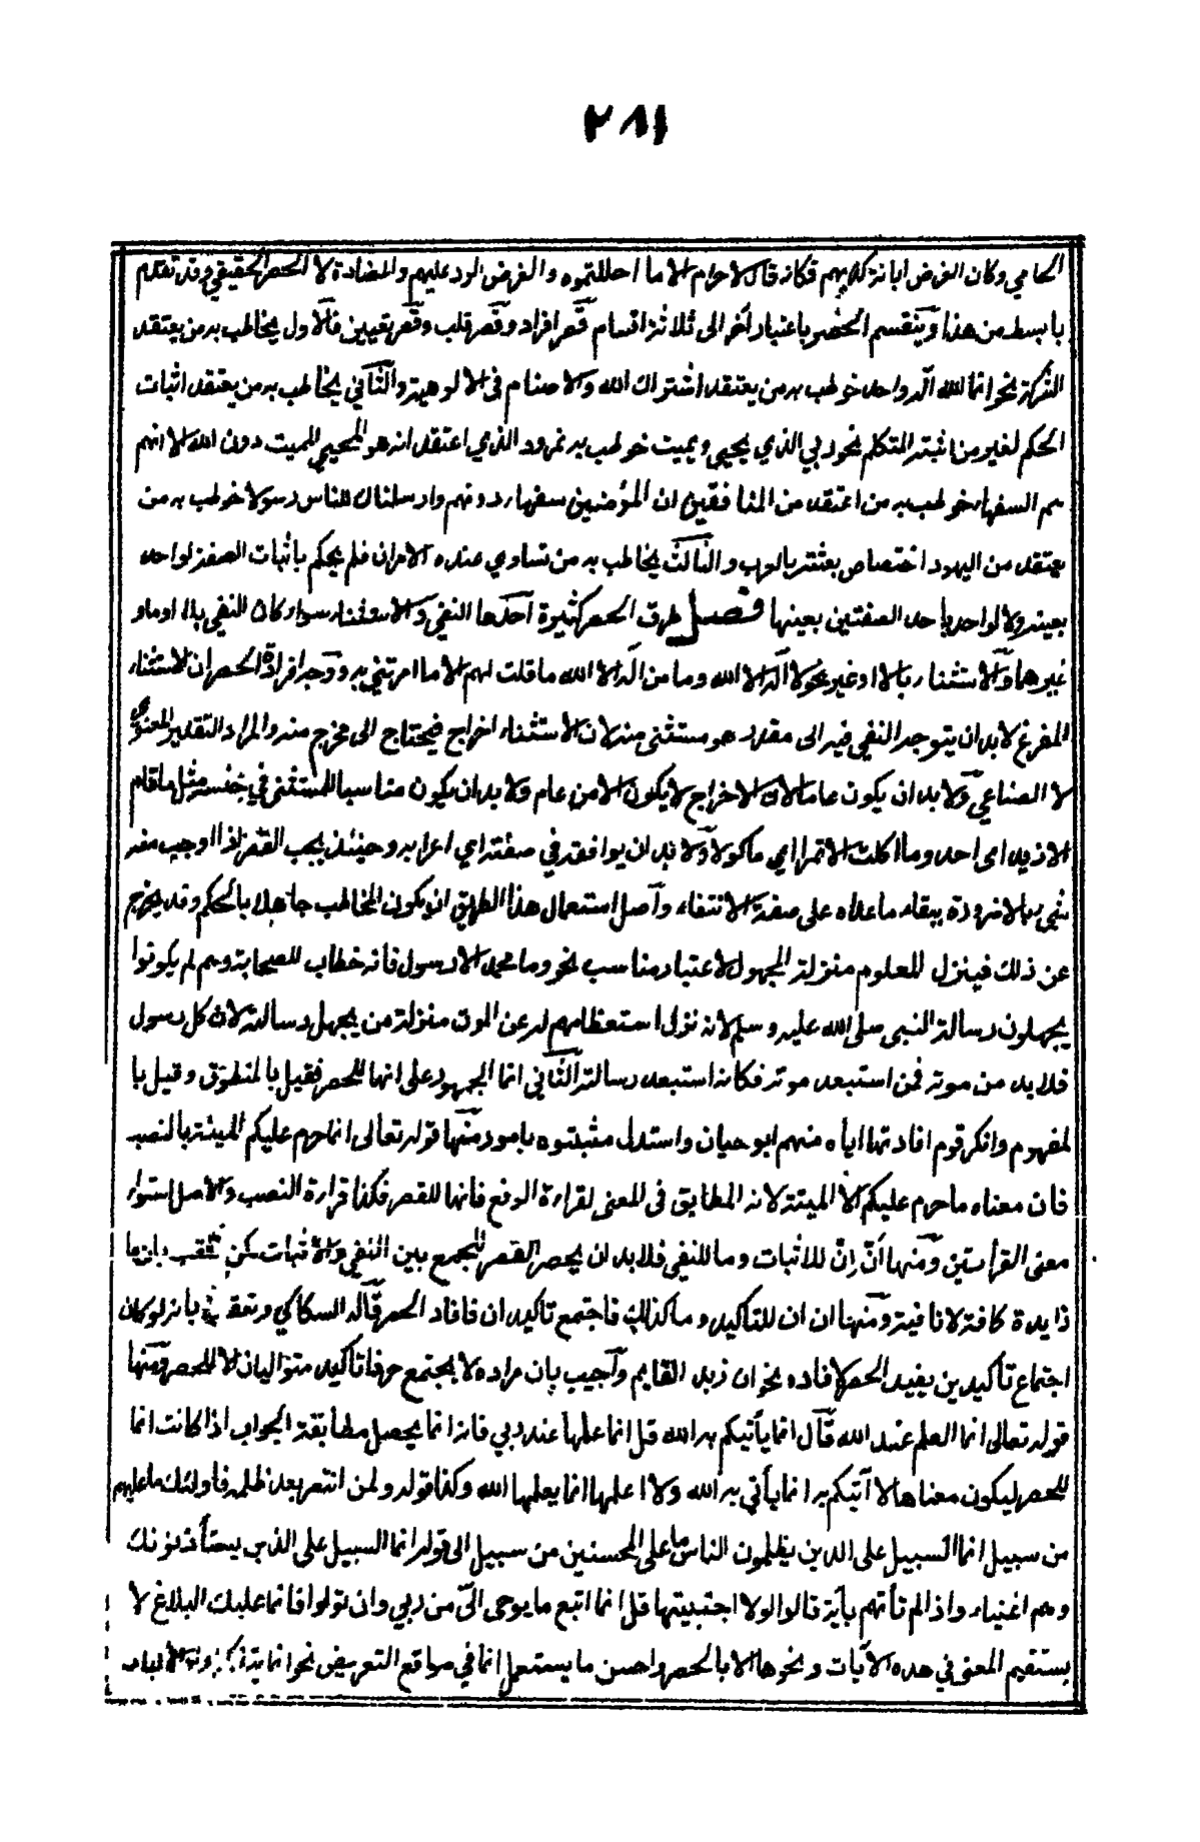 ٢٨١
الحامي وكان الغرض ابانة كذبهم فكانه قال لا حرام الا ما احللتموه والغرض الرد عليهم والمضادة لا الحصر الحقيقي وقد تقدم
بابسط من هذا وينقسم الحصر باعتبار آخر الى ثلاثة اقسام قصر افراد وقصر قلب وقصر تعيين فالاول يخاطب به من يعتقد
الشركة نحو انما الله اله واحد خوطب به من يعتقد اشتراك الله والاصنام في الالوهية والثاني يخاطب به من يعتقد اثبات
الحكم لغير من اثبته المتكلم نحو ربي الذي يحيي ويميت خوطب به نمرود الذي اعتقد انه هو المحيي المميت دون الله الا انهم
هم السفهاء خوطب به من اعتقد من المنافقين ان المؤمنين سفهاء دونهم وارسلناك للناس رسولا خوطب به من
يعتقد من اليهود اختصاص بعثته بالعرب والثالث يخاطب به من تساوى عنده الامران فلم يحكم باثبات الصفة لواحد
بعينه ولا لواحد باحد الصفتين بعينها فصل طرق الحصر كثيرة احدها النفي والاستثناء سواء كان النفي بلا او ما او
غيرهما والاستثناء بالا او غير نحو لا اله الا الله وما من اله الا الله ما قلت لهم الا ما امرتني به ووجه افادة الحصر ان الاستثناء
المفرغ لا بد ان يتوجه النفي فيه الى مقدر هو مستثنى منه لان الاستثناء اخراج فيحتاج الى مخرج منه والمراد التقدير المعنوي
لا الصناعي ولا بد ان يكون عاما لان الاخراج لا يكون الا من عام ولا بد ان يكون مناسبا للمستثنى في جنسه مثل ما قام
الا زيد اى احد وما اكلت الا تمرا اي ماكولا ولا بد ان يوافقه في صفته اي اعرابه وحينئذ يجب القصر اذا اوجب منه
شي بالا ضرورة ببقاء ما عداه على صفة الانتفاء واصل استعمال هذا الطريق ان يكون المخاطب جاهلا بالحكم وقد يخرج
عن ذلك فينزل المعلوم منزلة المجهول لاعتبار مناسب نحو وما محمد الا رسول فانه خطاب للصحابة وهم لم يكونوا
يجهلون رسالة النبي صلى الله عليه وسلم لانه نزل استعظامهم له عن الموت منزلة من يجهل رسالته لان كل رسول
فلا بد من موته فمن استبعد موته فكانه استبعد رسالته الثاني انما الجمهور على انها للحصر فقيل بالمنطوق وقيل با
لمفهوم وانكر قوم افادتها اياه منهم ابو حيان واستدل مثبتوه بامور منها قوله تعالى انما حرم عليكم الميتة بالنصب
فان معناه ما حرم عليكم الا الميتة لانه المطابق في المعنى لقراءة الرفع فانها للقصر فكذا قراءة النصب والاصل استواء
معنى القرأتين ومنها ان ان للاثبات وما للنفي فلا بد ان يحصر القصر للجمع بين النفي والاثبات لكن تعقب بان ما
زايدة كافة لا نافية ومنها ان ان للتاكيد وما كذلك فاجتمع تاكيد ان فافاد الحصر قاله السكاكي وتعقب بانه لو كان
اجتماع تاكيدين يفيد الحصر لافاده نحو ان زيدا لقايم واجيب بان مراده لا يجتمع حرفا تاكيد متواليان الا للحصر ومنها
قوله تعالى انما العلم عند الله قال انما ياتيكم به الله قل انما علمها عند ربي فانه انما يحصل مطابقة الجواب اذا كانت انما
للحصر ليكون معناها لا آتيكم به انما يأتي به الله ولا اعلمها انما يعلمها الله وكذا قوله ولمن انتصر بعد ظلمه فاولئك ما عليهم
من سبيل انما السبيل على الذين يظلمون الناس ما على المحسنين من سبيل الى قوله انما السبيل على الذين يستأذنونك
وهم اغنياء واذا لم تأتهم بأية قالوا لولا اجتبيتها قل انما اتبع ما يوحى الى من ربي وان تولوا فانما عليك البلاغ لا
يستقيم المعنى في هذه الآيات ونحوها الا بالحصر واحسن ما يستعمل انما في مواقع التعريض نحو انما يتذكر اولو الالباب